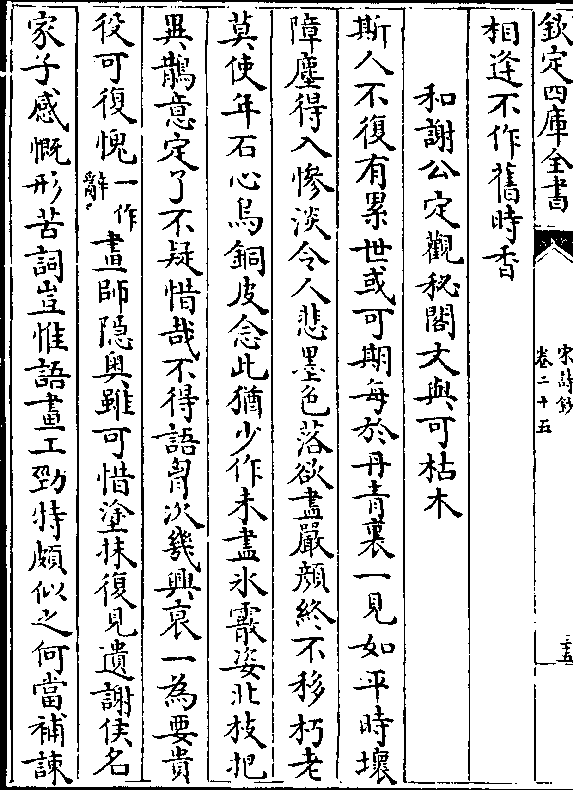 欽定四庫全書
宋詩鈔
卷二十五
三五
相逢不作舊時香
和謝公定觀秘閣文與可枯木
斯人不復有累世或可期每於丹青裏一見如平時壞
障塵得入慘淡令人悲墨色落欲盡嚴顔終不移朽老
莫使年石心烏銅皮念此猶少作未盡氷霰姿北枝把
異鵲意定了不疑惜哉不得語胷次幾興哀一為要貴
役可復愧一作辭畫師隱奥雖可惜塗抹復見遺謝侯名
家子感慨形苦詞豈惟語畫工勁特頗似之何當補諫